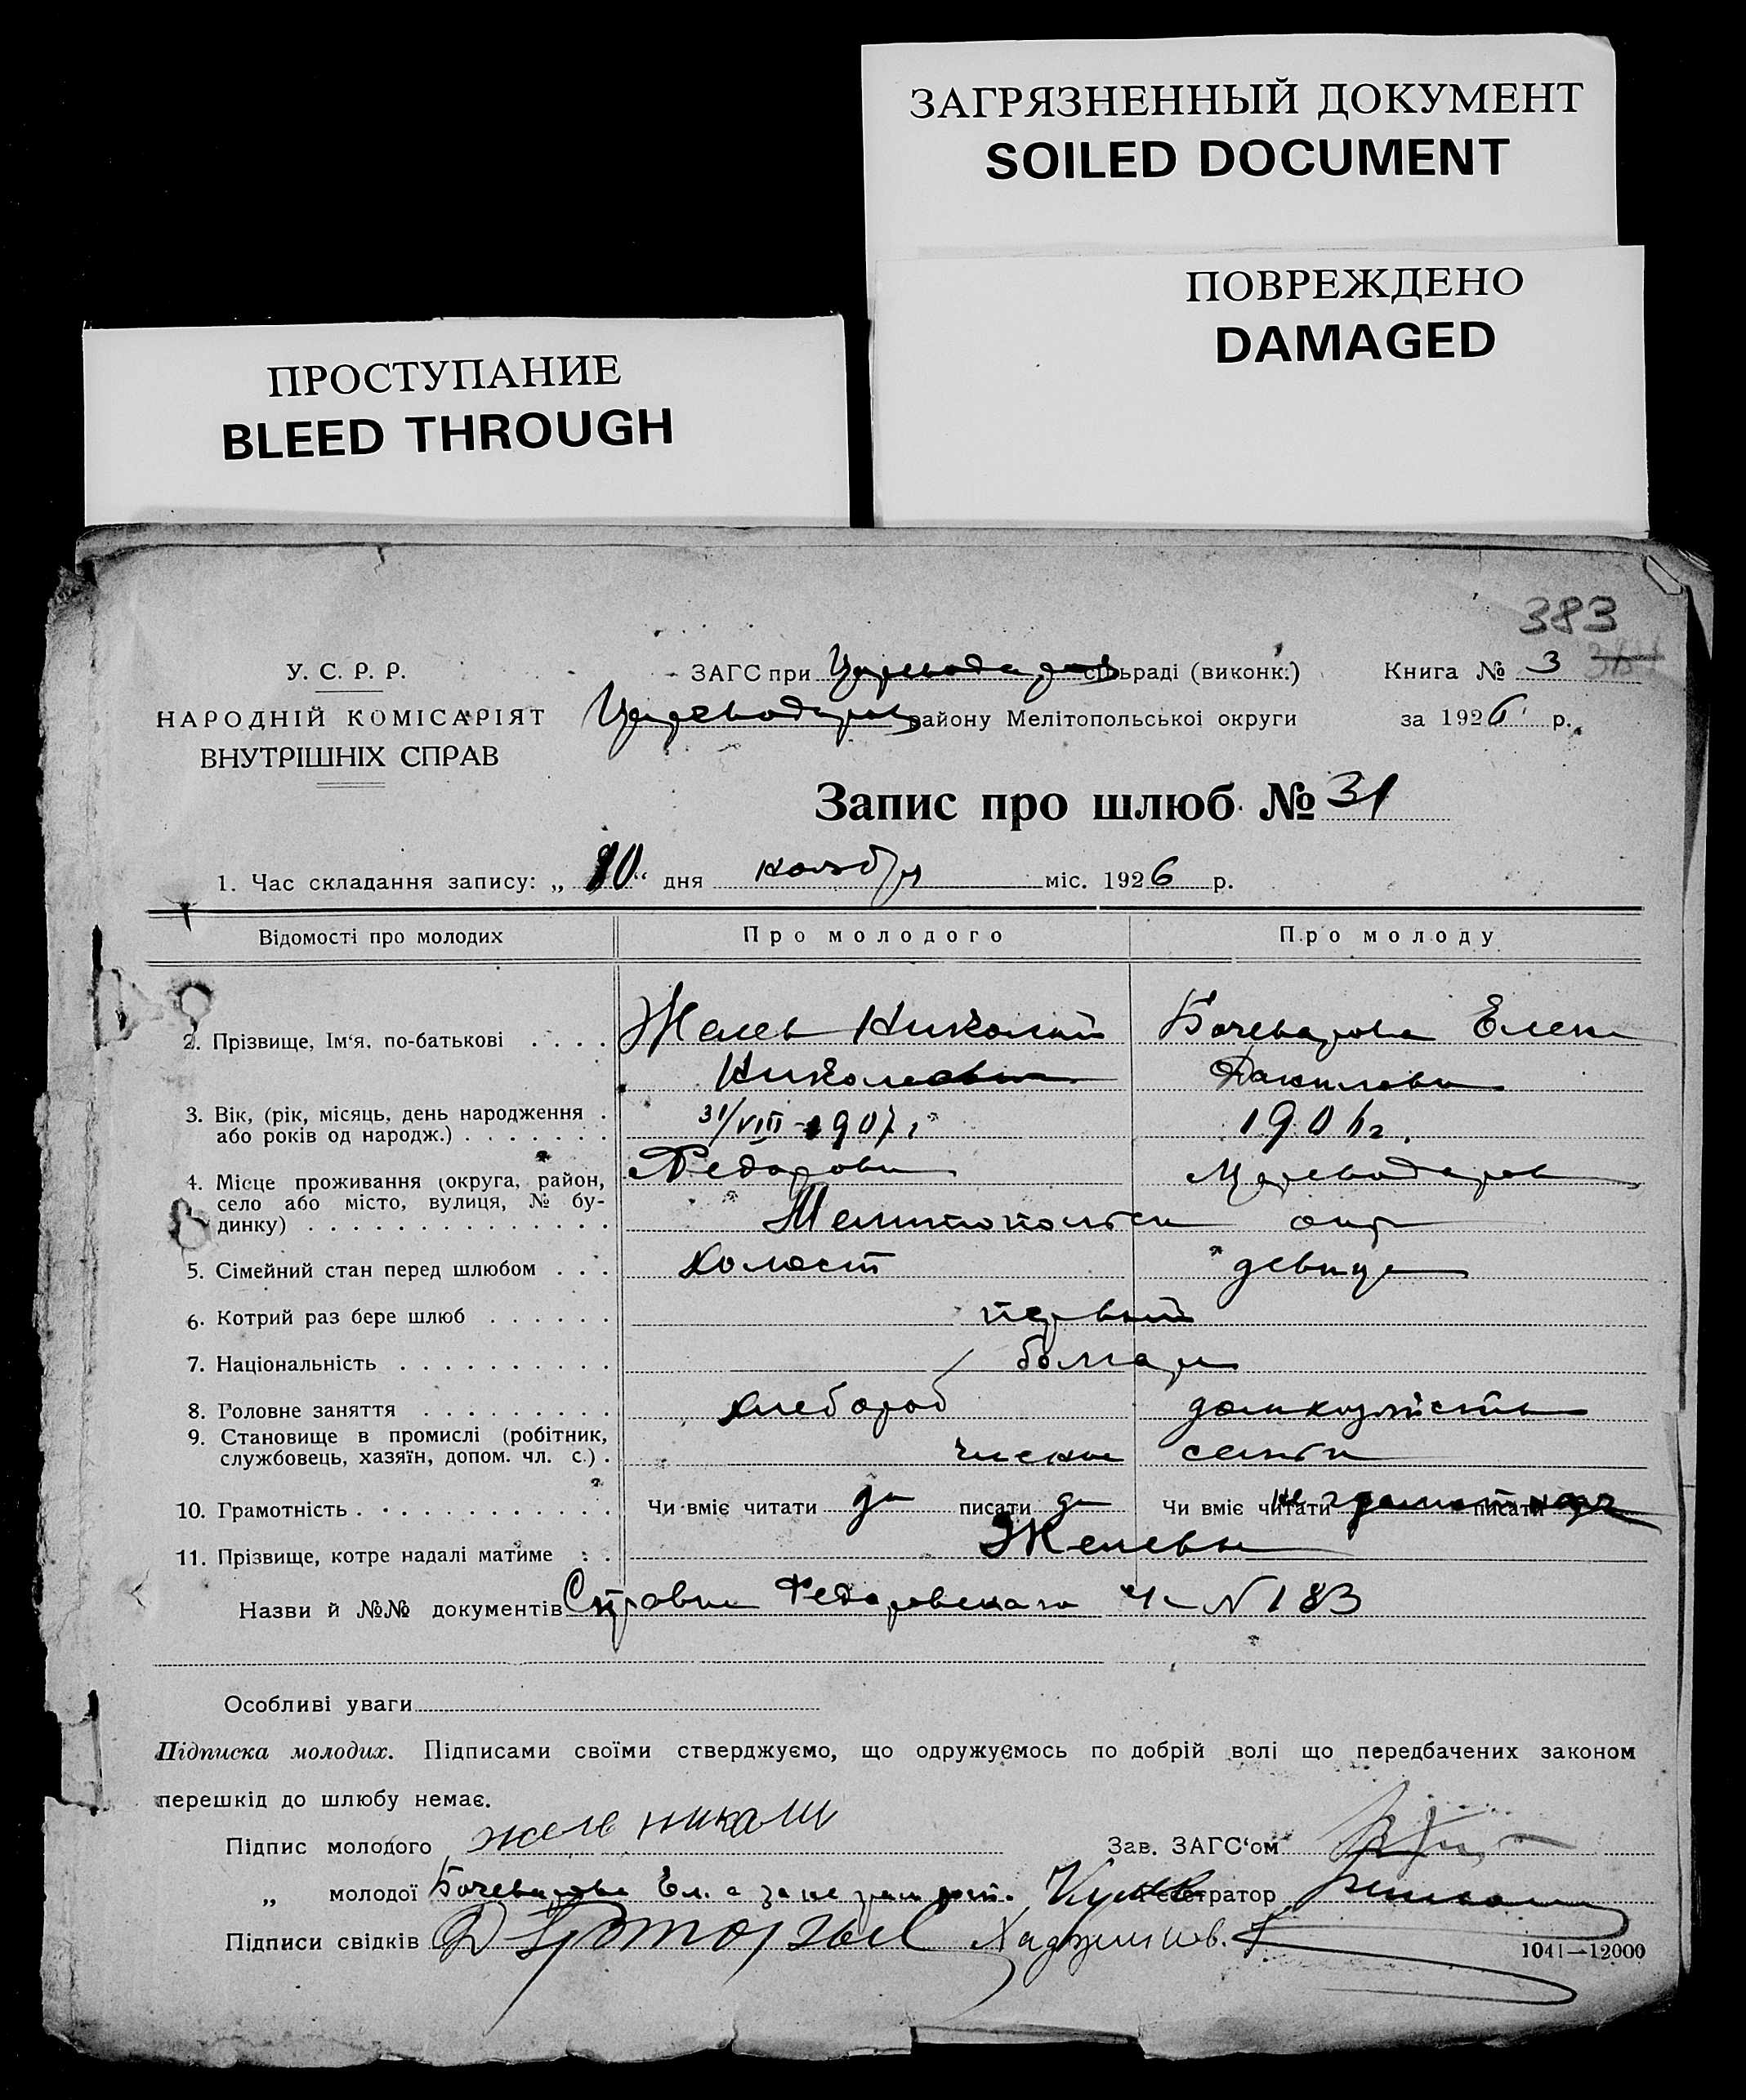 ЗАГРЯЗНЕННЫЙ ДОКУМЕНТ
SOILED DOCUMENT
ПОВРЕЖДЕНО
DAMAGED
ПРОСТУПАНИЕ
BLEED THROUGH
383
У. С. Р. Р.
НАРОДНІЙ КОМІСАРІЯТ
ВНУТРІШНІХ СПРАВ
ЗАГС при Цареводаров сільраді (виконк.)
Цареводаров району Мелітопольської округи
Книга № 3
за 1926 р.
Запис про шлюб № 31
1. Час складання запису: „10“ дня ноября міс. 1926 р.
Відомості про молодих Про молодого Про молоду
2. Прізвище, Ім'я, по-батькові . . . . Желев Николай Бочеварова Елена
Николаевич Даниловна
3. Вік, (рік, місяць, день народження . 31/VIII-1907 г. 1906 г.
або років од народж.) . . . . . . .
4. Місце проживання (округа, район, Федоровка Цареводаров
село або місто, вулиця, № бу-
динку) . . . . . . . . . . . . . . Мелитопольск окр
5. Сімейний стан перед шлюбом . . . холост девица
6. Котрий раз бере шлюб . . . . . . первый
7. Національність . . . . . . . . . . болгары
8. Головне заняття . . . . . . . . . хлебороб домхозяйства
9. Становище в промислі (робітник,
службовець, хазяїн, допом. чл. с.) . члены семьи
10. Грамотність . . . . . . . . . . . . Чи вміє читати да писати да Чи вміє читати неграмотная писати
11. Прізвище, котре надалі матиме : . Желевы
Назви й №№ документів Справка Федоровского N 183
Особливі уваги
Підписка молодих. Підписами своїми стверджуємо, що одружуємось по добрій волі що передбачених законом
перешкід до шлюбу немає.
Підпис молодого желв никали Зав. ЗАГС'ом
„ молодої Бочеварова Ел. а за не грамотн. Реєстратор
Підписи свідків 1041—12000